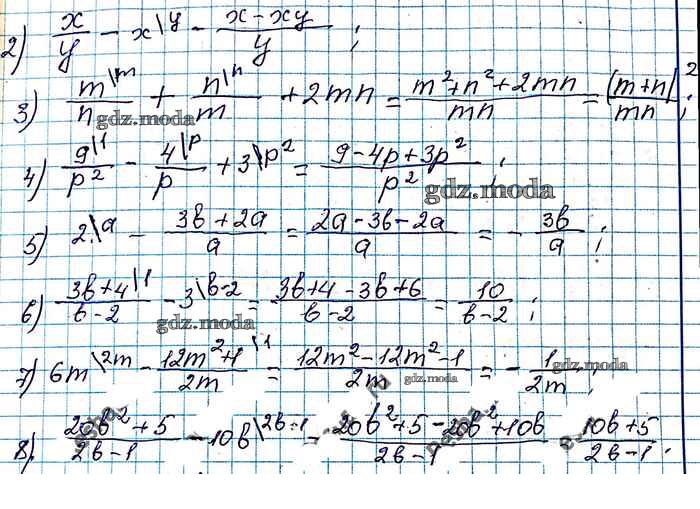 2) x/y - x\y - x-xy/y ;
3) m\m/n + n\n/m + 2mn = m²+n²+2mn/mn = (m+n)²/mn ;
gdz.moda
4) 9\1/p² - 4\p/p + 3\p² = 9-4p+3p²/p² ;
gdz.moda
5) 2\a - 3b+2a/a = 2a-3b-2a/a = - 3b/a ;
6) 3b+4\1/b-2 - 3\b-2 = 3b+4-3b+6/b-2 = 10/b-2 ;
gdz.moda
7) 6m\2m - 12m²+1\1/2m = 12m²-12m²-1/2m = - 1/2m ;
gdz.moda gdz.moda
8) 20b²+5/2b-1 - 10b\2b-1 - 20b²+5-20b²+10b/2b-1 - 10b+5/2b-1 ;